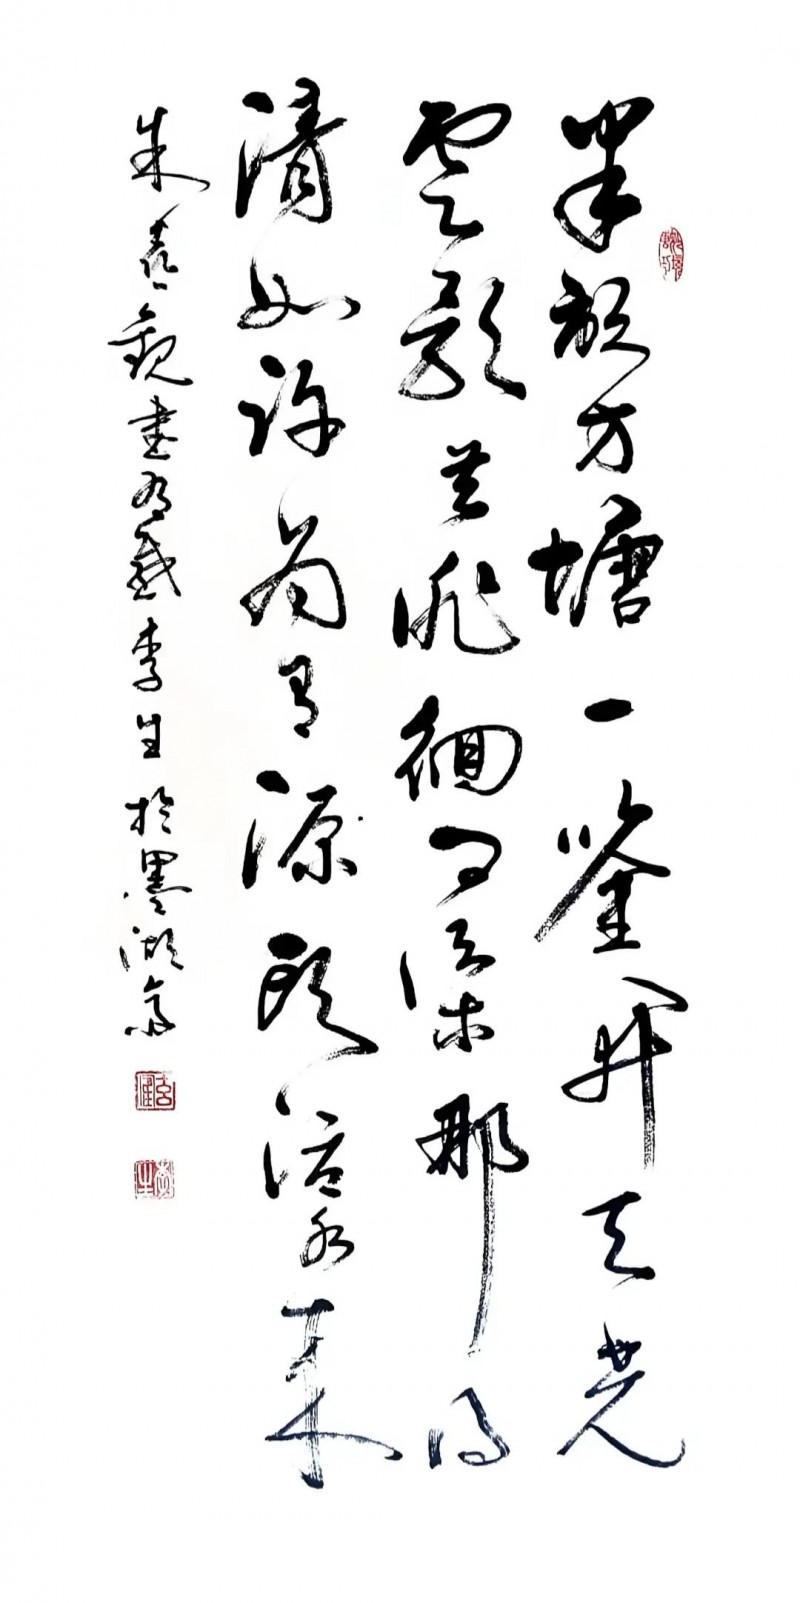 半畝方塘一鑒開天光
雲影共徘徊問渠那得
清如許為有源頭活水來
朱熹觀書有感李生於墨湖齋
李生